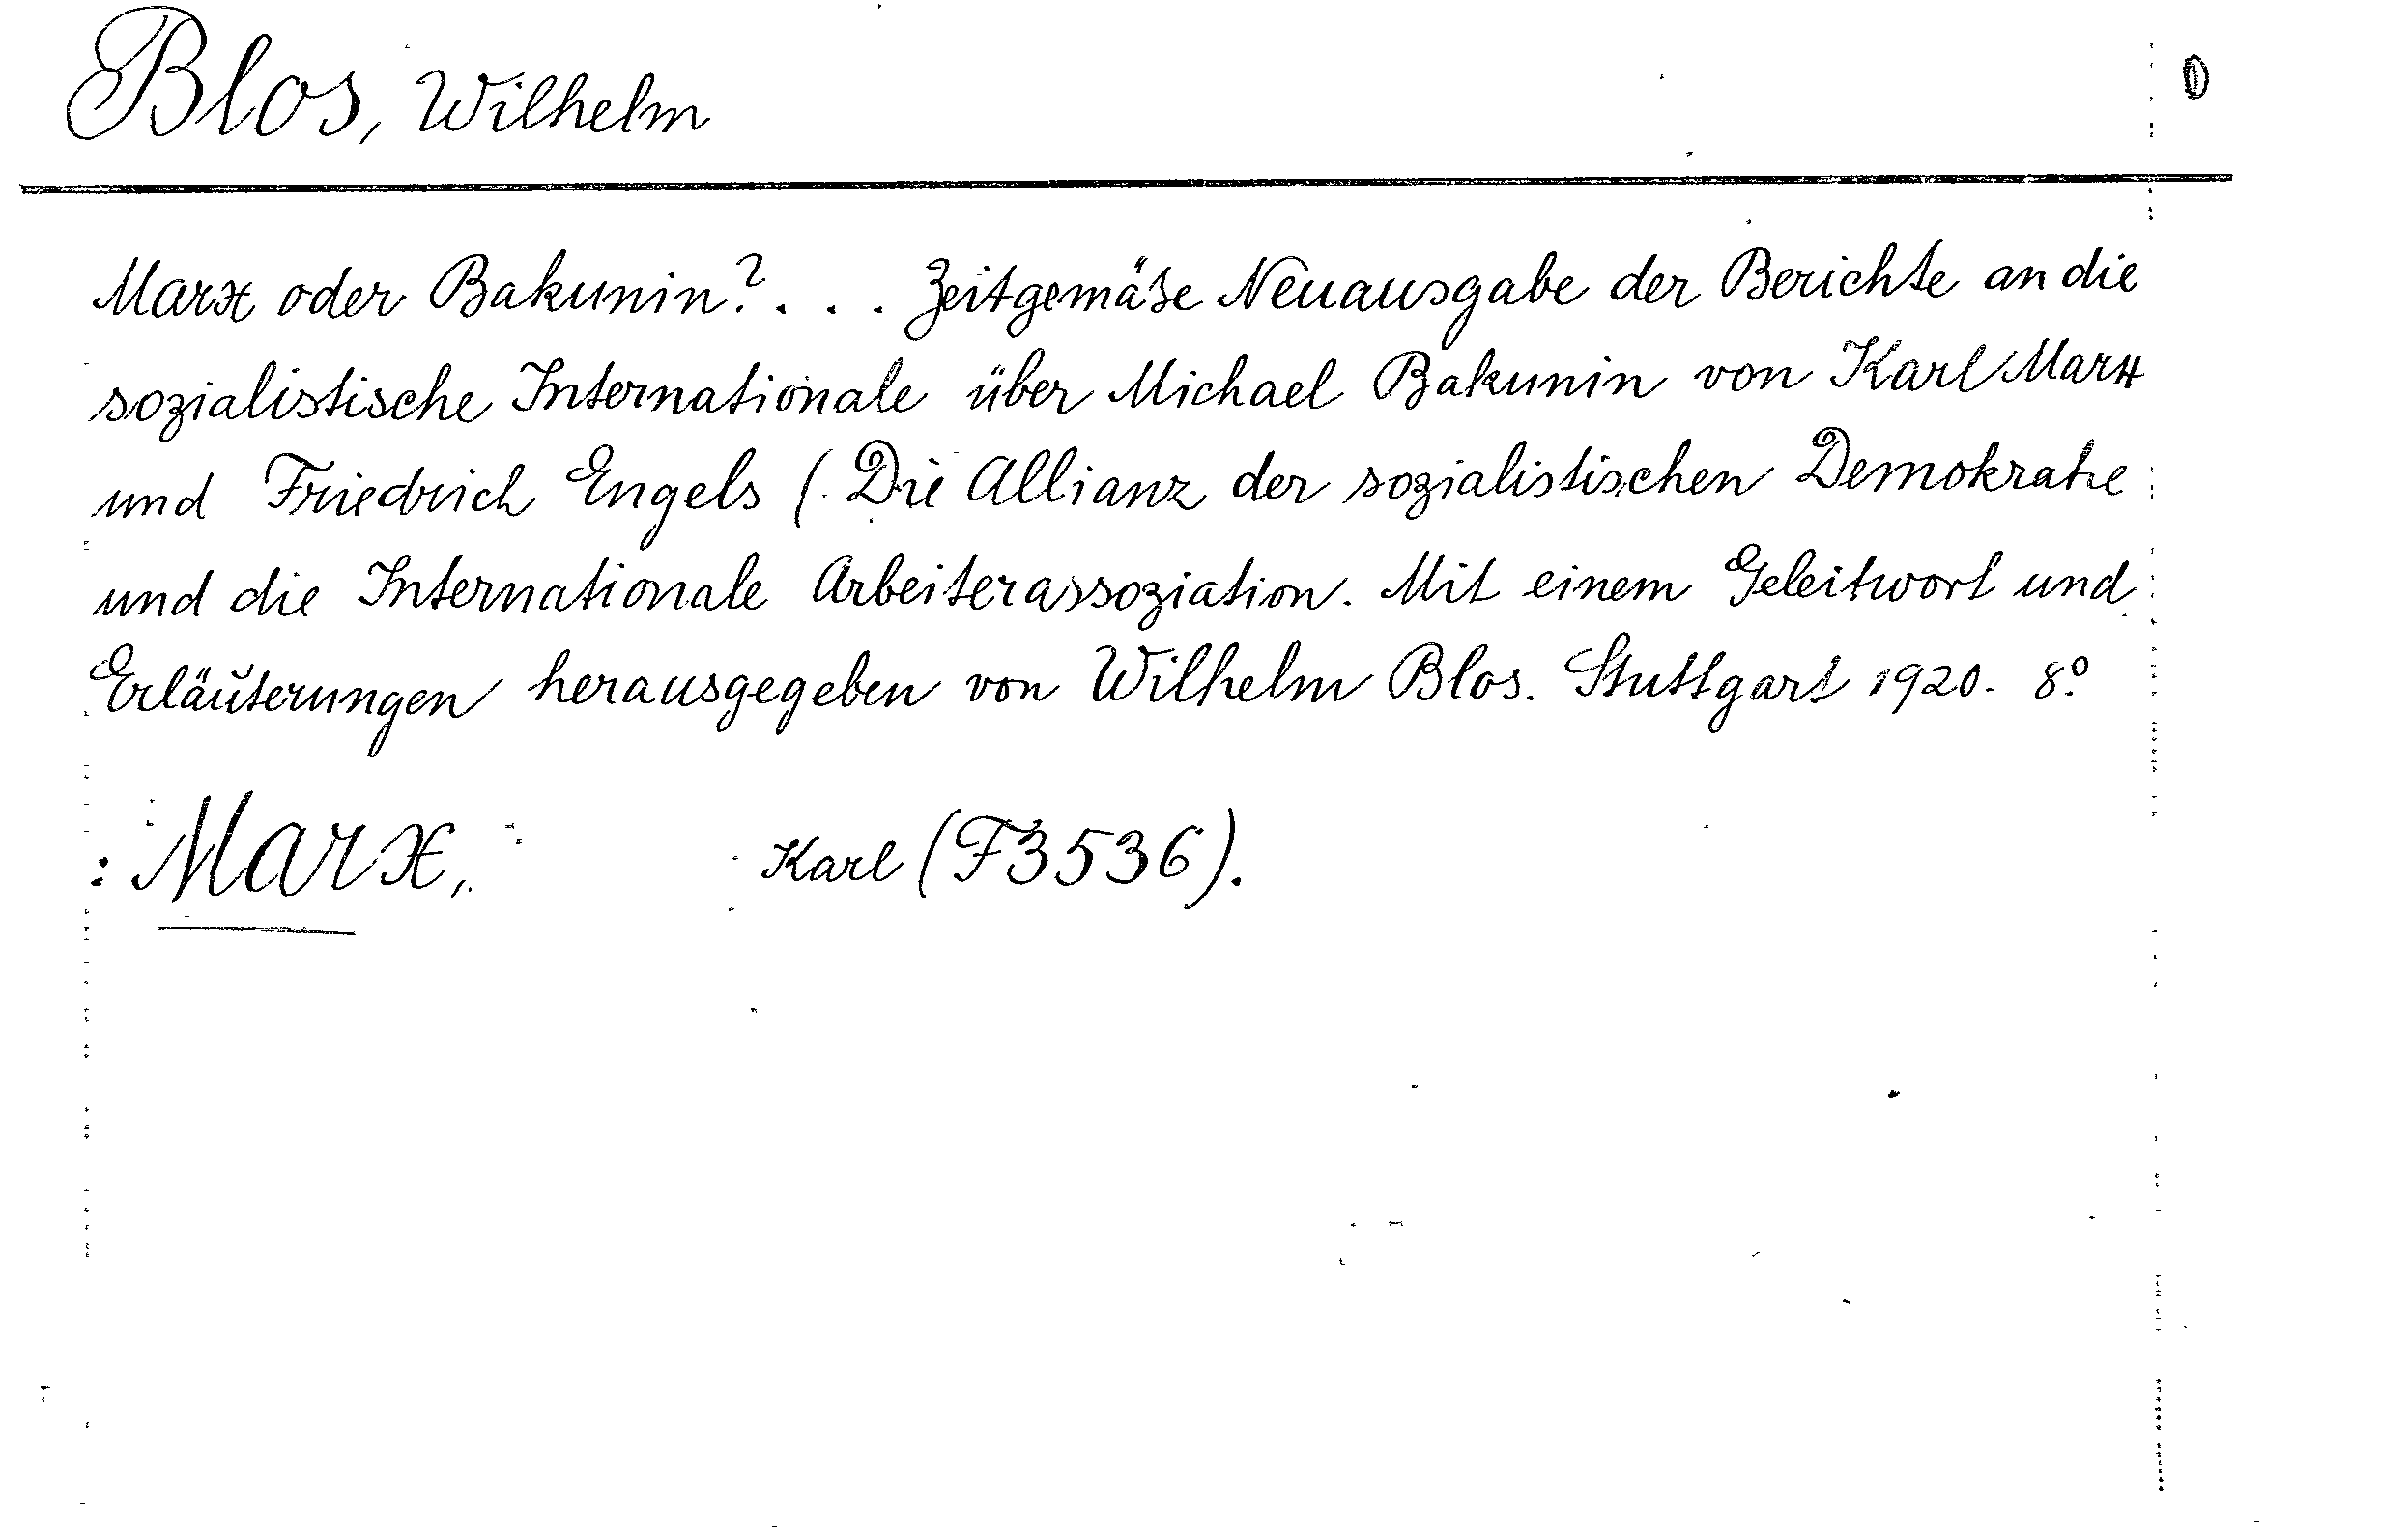 Blos, Wilhelm
Marx oder Bakunin?... Zeitgemäße Neuausgabe der Berichte an die
sozialistische Internationale über Michael Bakunin von Karl Marx
und Friedrich Engels (Die Allianz der sozialistischen Demokratie
und die Internationale Arbeiterassoziation. Mit einem Geleitwort und
Erläuterungen herausgegeben von Wilhelm Blos. Stuttgart 1920. 8°
: Marx, Karl (F3536).